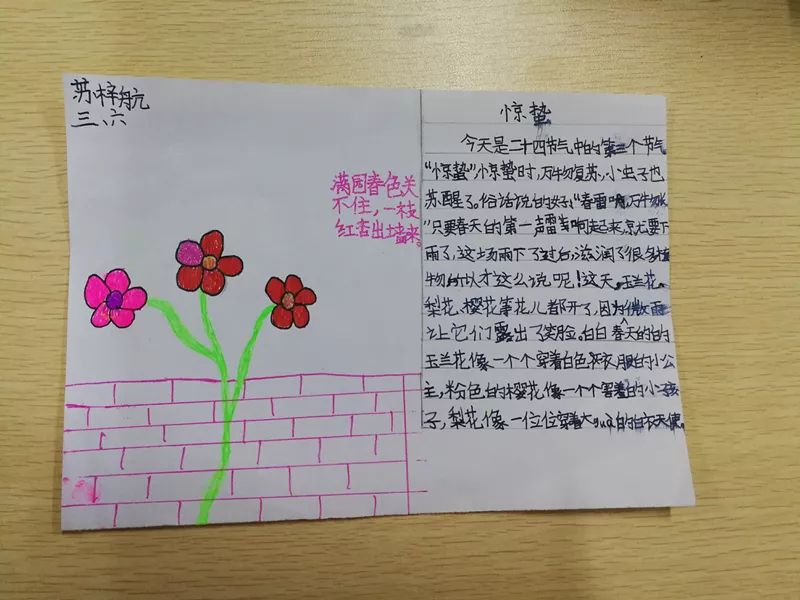 苏梓航
三、六
满园春色关
不住,一枝
红杏出墙来。
惊蛰
今天是二十四节气中的第三个节气
“惊蛰”惊蛰时,万物复苏,小虫子也
苏醒了。俗话说的好:“春雷响,万物长
”只要春天的第一声雷响起来,就要下
雨了,这场雨下了过后,滋润了很多植
物所以才这么说呢!这天,玉兰花、
梨花、樱花等花儿都开了,因为微雨
让它们露出了笑脸。白白春天的的
玉兰花像一个个穿着白色衣服的小公
主,粉色的樱花像一个个害羞的小孩
子,梨花像一位位穿着大guà的白衣天使。